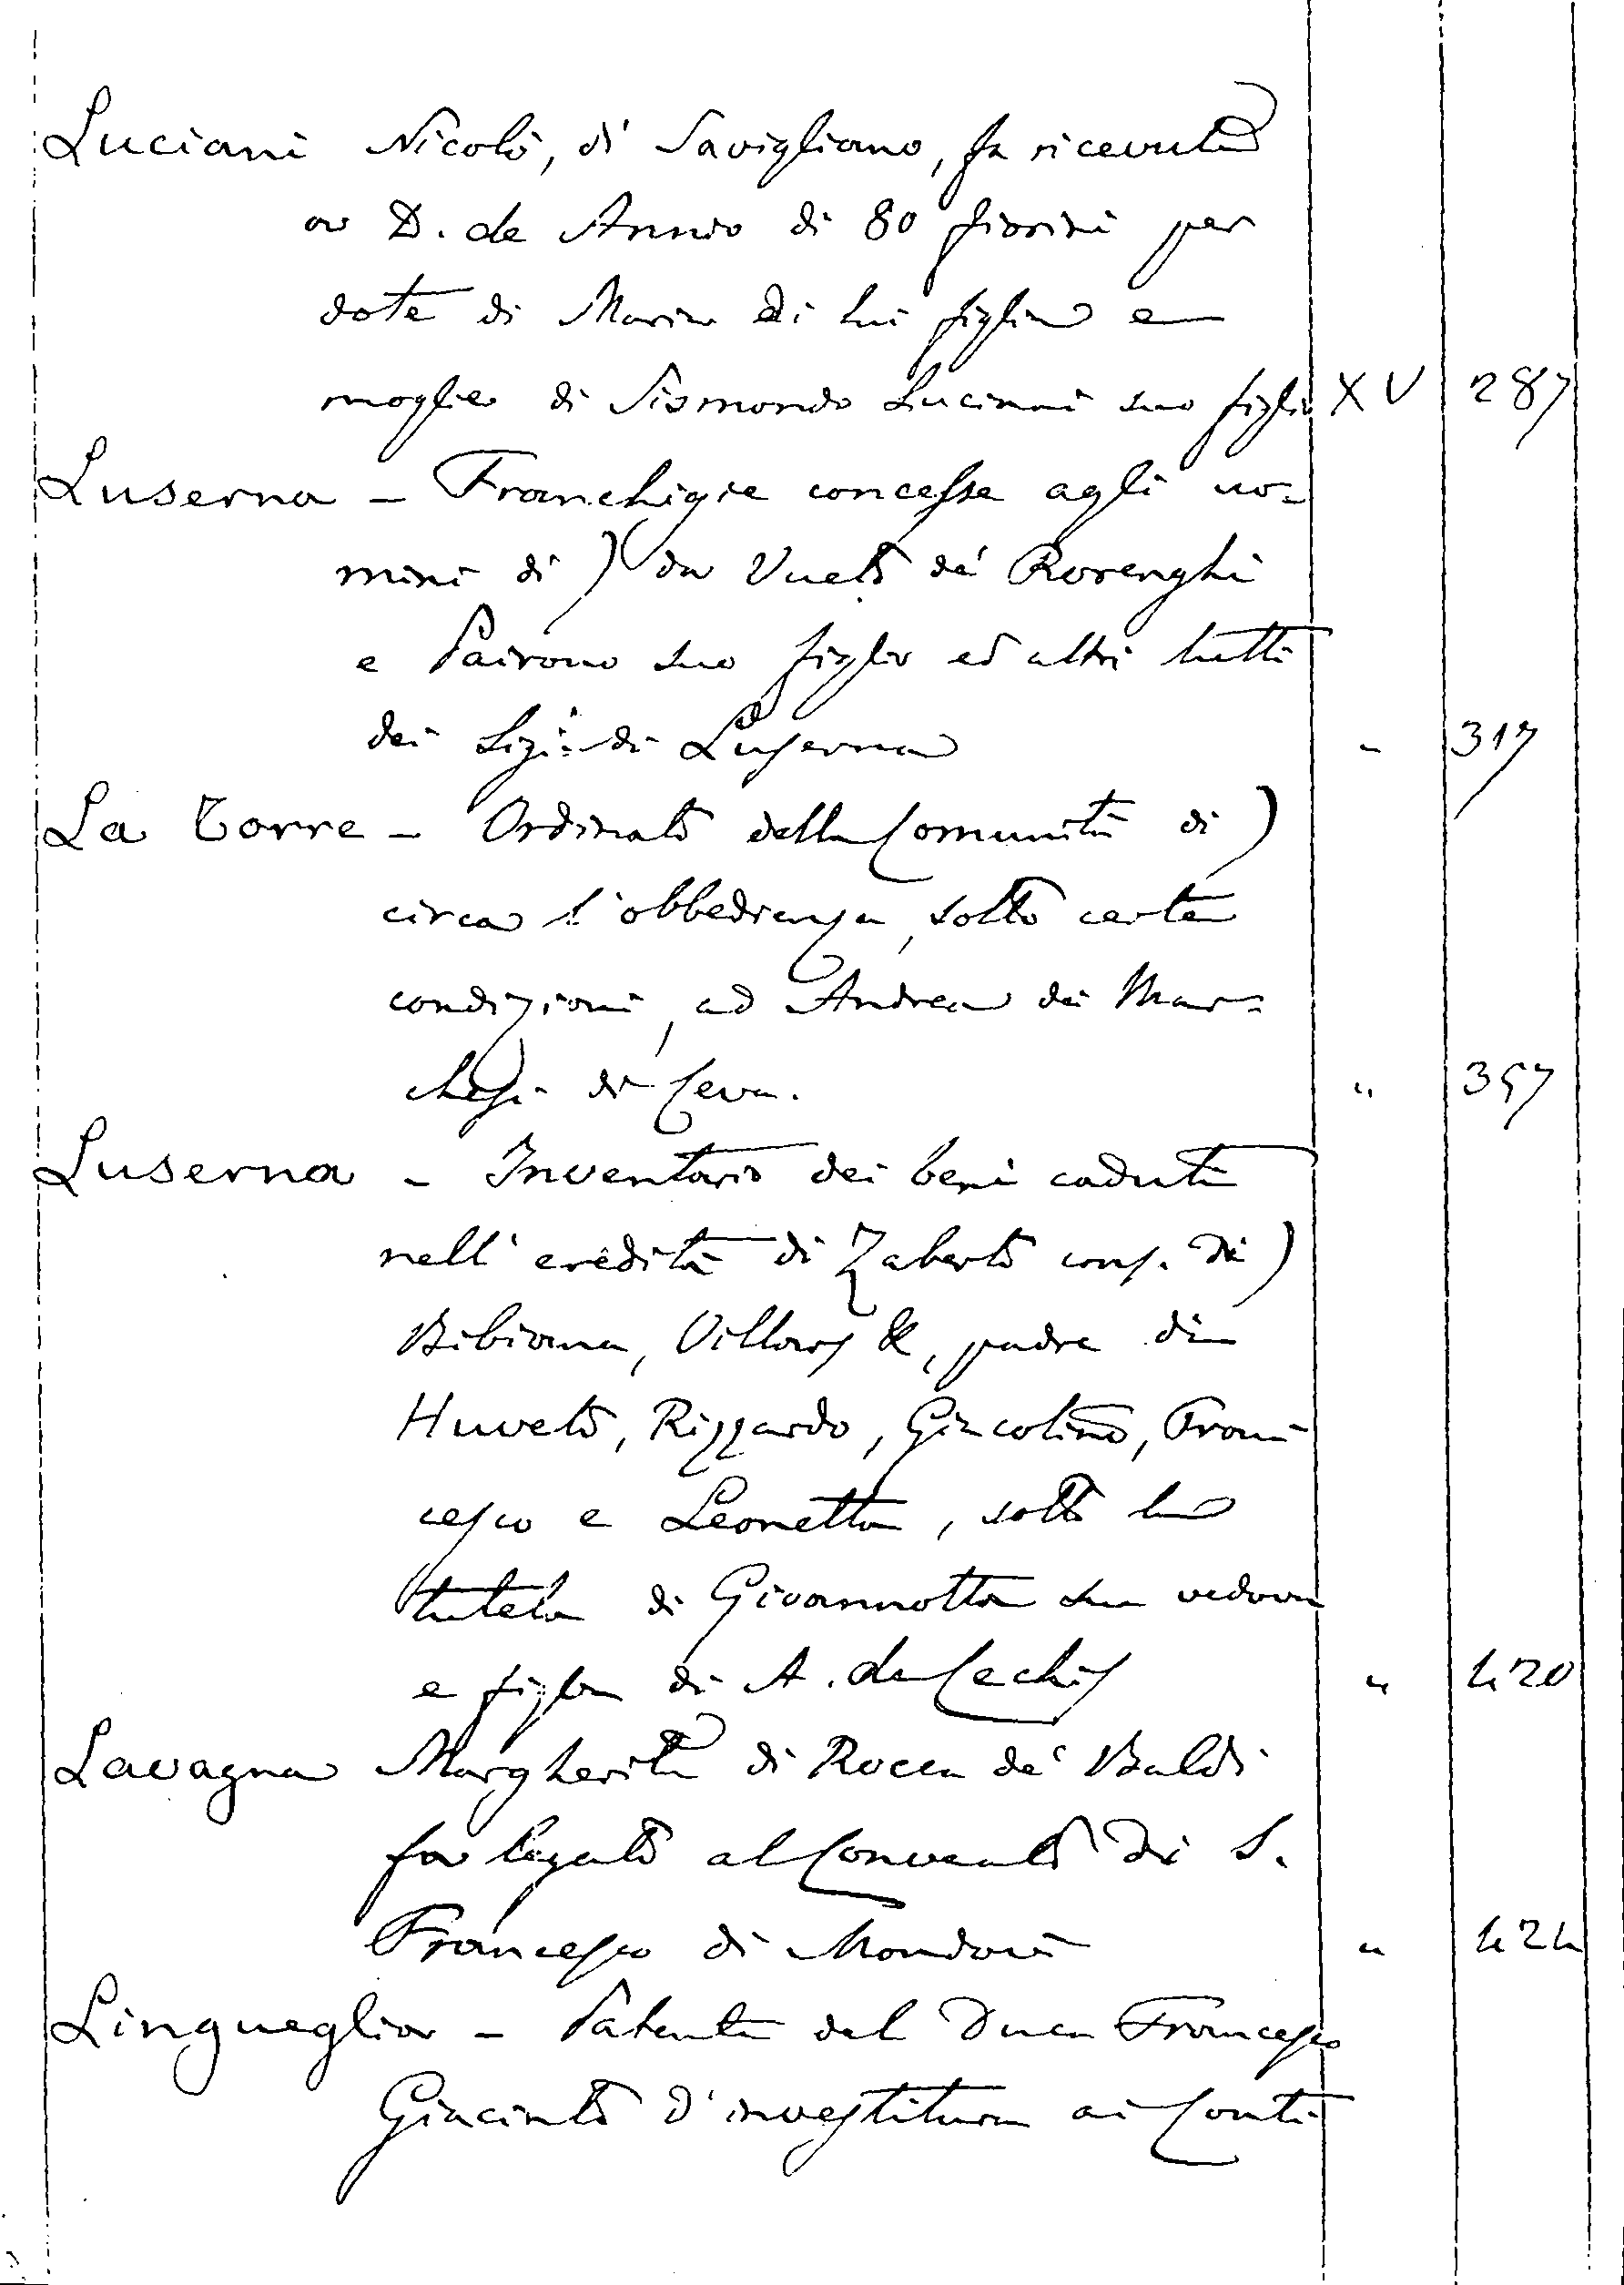 Luciani Nicolò, di Savigliano, fa ricevuta
a D. de Annio di 80 fiorini per
dote di Maria di lui figlia e
moglie di Sismondo Luciani suo figlio XV 287
Luserna - Franchigie concesse agli uo=
mini di ) da Vueto de' Rorenghi
e Pairono suo figlio ed altri tutti
dei Sig.i di Luserna - 317
La Torre - Ordinato della Comunità di )
circa l'obbedienza, sotto certe
condizioni, ad Andrea dei Mar=
chesi di Ceva. " 357
Luserna - Inventario dei beni caduti
nell'eredità di Zaberto cons. di )
Bibiana, Villars &, padre di
Huveto, Rizzardo, Giacolino, Fran=
cesco e Leonetta, sotto la
tutela di Giovannotta sua vedova
e figlia di A. de Cechis " 420
Lavagna Margherita di Rocca de' Baldi
fa legato al Convento di S.
Francesco di Mondovì " 424
Lingueglia - Patenti del Duca Francesco
Giacinto d'investitura ai Conti